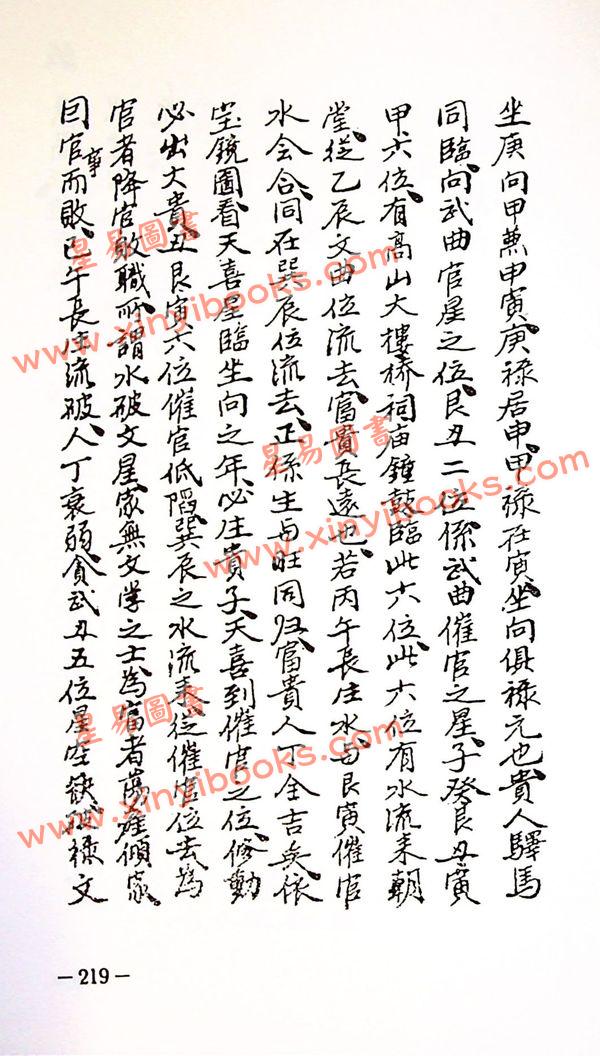 坐庚向甲兼申寅庚祿居申甲祿在寅坐向俱祿元也貴人驛馬
同臨向武曲官星之位艮丑二位係武曲催官之星子癸艮丑寅
甲六位有高山大樓橋祠庙鐘鼓臨此六位此六位有水流来朝
堂從乙辰文曲位流去富貴長遠也若丙午長生水与艮寅催官
水会合同在巽辰位流去正係生与旺同归富貴人丁全吉矣依
宝鏡圖看天喜星臨坐向之年必生貴子天喜到催官之位修動
必出大貴丑艮寅六位催官低陷巽辰之水流来從催官位去為
官者降官敗職所謂水破文星家無文学之士為富者蕩產傾家
因官事而敗已午長生流破人丁衰弱貪武丑五位星空缺破祿文
星易圖書
www.xinyibooks.com
星易圖書
www.xinyibooks.com
星易圖書
www.xinyibooks.com
－219－